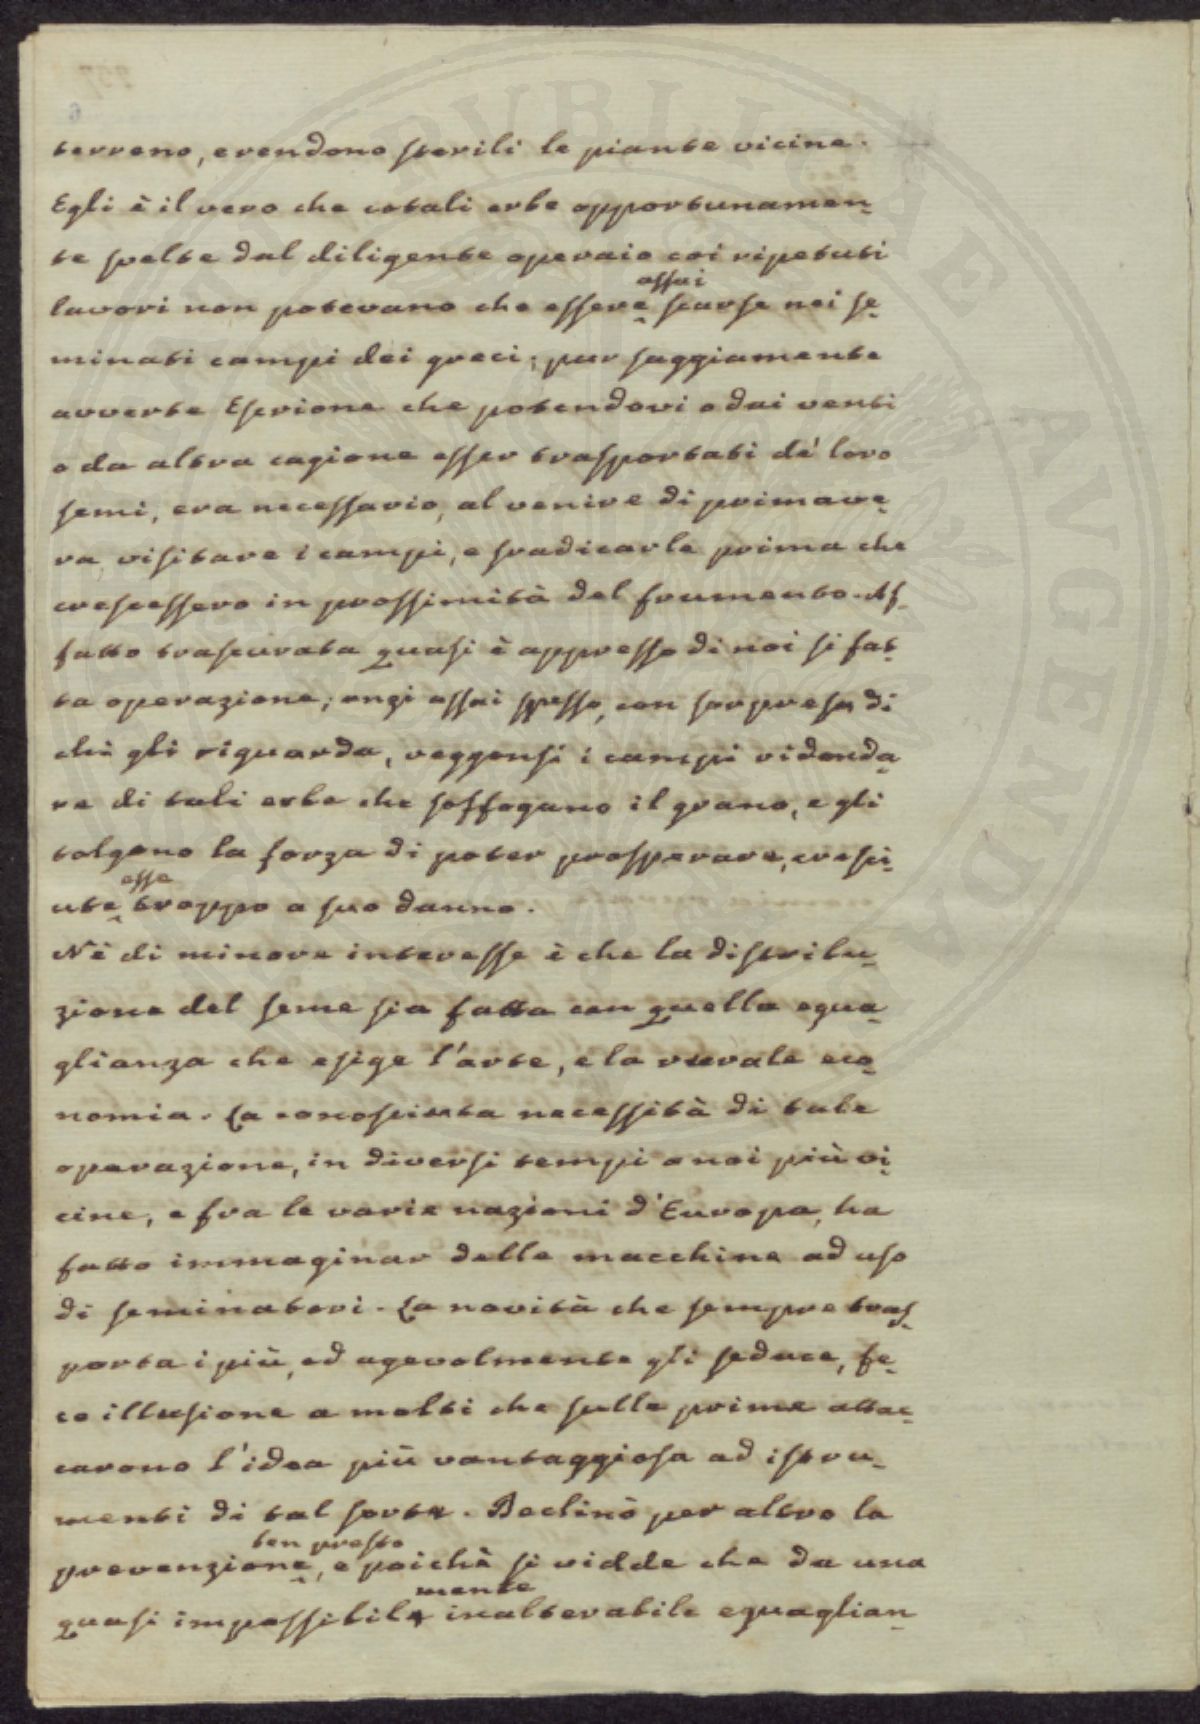 terreno, e rendono sterili le piante vicine.
Egli è il vero che cotali erbe opportunamen-
te svelte dal diligente operaio coi ripetuti
assai
lavori non potevano che essere scarse nei se-
minati campi dei greci; pur saggiamente
avverte Escrione che potendovi o dai venti
o da altra cagione esser trasportati de' loro
semi, era necessario, al venire di primave-
ra, visitare i campi, e sradicarle prima che
crescessero in prossimità del frumento. Af-
fatto trascurata quasi è appresso di noi sì fat-
ta operazione; anzi assai spesso, con sorpresa di
chi gli riguarda, veggonsi i campi ridonda-
re di tali erbe che soffogano il grano, e gli
tolgono la forza di poter prosperare, cresci-
esse
ute troppo a suo danno.
Nè di minore interesse è che la distribu-
zione del seme sia fatta con quella egua-
glianza che esige l'arte, e la rurale eco-
nomia. La conosciuta necessità di tale
operazione, in diversi tempi a noi più vi-
cine, e fra le varie nazioni d'Europa, ha
fatto immaginar delle macchine ad uso
di seminatori. La novità che sempre tras-
porta i più, ed agevolmente gli seduce, fe-
ce illusione a molti che sulle prime attac-
carono l'idea più vantaggiosa ad istru-
menti di tal sorte. Declinò per altro la
ben presto
prevenzione, e poichè si vidde che da una
mente
quasi impossibil inalterabile eguaglian-
PVBLICAE AVGENDA